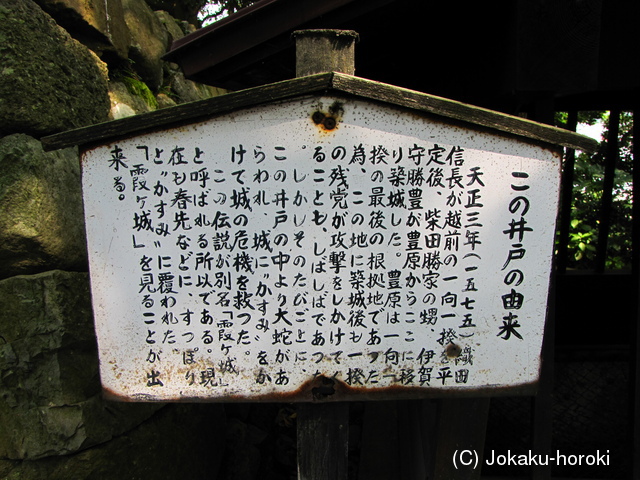 この井戸の由来
天正三年(一五七五)織田
信長が越前の一向一揆を平
定後、柴田勝家の甥 伊賀
守勝豊が豊原からここに移
り築城した。豊原は一向一
揆の最後の根拠地であった
為、この地に築城後も一揆
の残党が攻撃をしかけて
ることも、しばしばであった
。しかしそのたびごとに
この井戸の中より大蛇があ
らわれ、城に"かすみ"をか
けて城の危機を救った。
この伝説が別名「霞ヶ城」
と呼ばれる所以である。現
在も春先などに、すっぽり
と"かすみ"に覆われた
「霞ヶ城」を見ることが出
来る。
(C) Jokaku-horoki